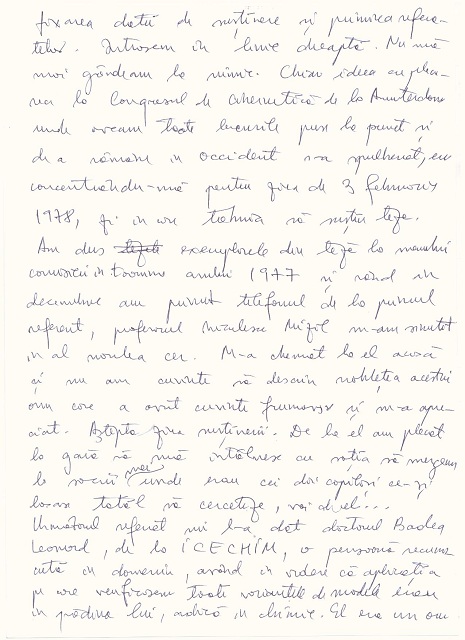 fixarea datei de susținere și primirea referatelor
telor. Intrasem in linie dreaptă. Nu mă
mai gândeam la nimic. Chiar ideea cu pleca-
rea la Congresul de Cibernetică de la Amsterdam
unde aveam toate lucrurile puse la punct și
de a rămâne in occident s-a spulberat, eu
concentrându-mă pentru ziua de 3 februarie
1978, zi in care trebuia să susțin teza.
Am dus exemplarele din teză la membrii
comisiei in toamna anului 1977 și când in
decembrie am primit telefonul de la primul
referent, profesorul Niculescu Mizil m-am simțit
in al nouălea cer. M-a chemat la el acasă
și nu am cuvinte să descriu noblețea acestui
om care a avut cuvinte frumoase și m-a apre-
ciat. Aștepta ziua susținerii. De la el am plecat
la gară să mă intâlnesc cu soția să mergem
la socrii mei unde erau cei doi copilași ce-și
lasau tatăl să cerceteze, vai de el...
Următorul referat mi l-a dat doctorul Badea
Leonard, de la ICECHIM, o persoană recunos-
cută in domeniu, având in vedere că aplicația
pe care verificasem toate variantele de modele erau
in grădina lui, adică in chimie. El era un om